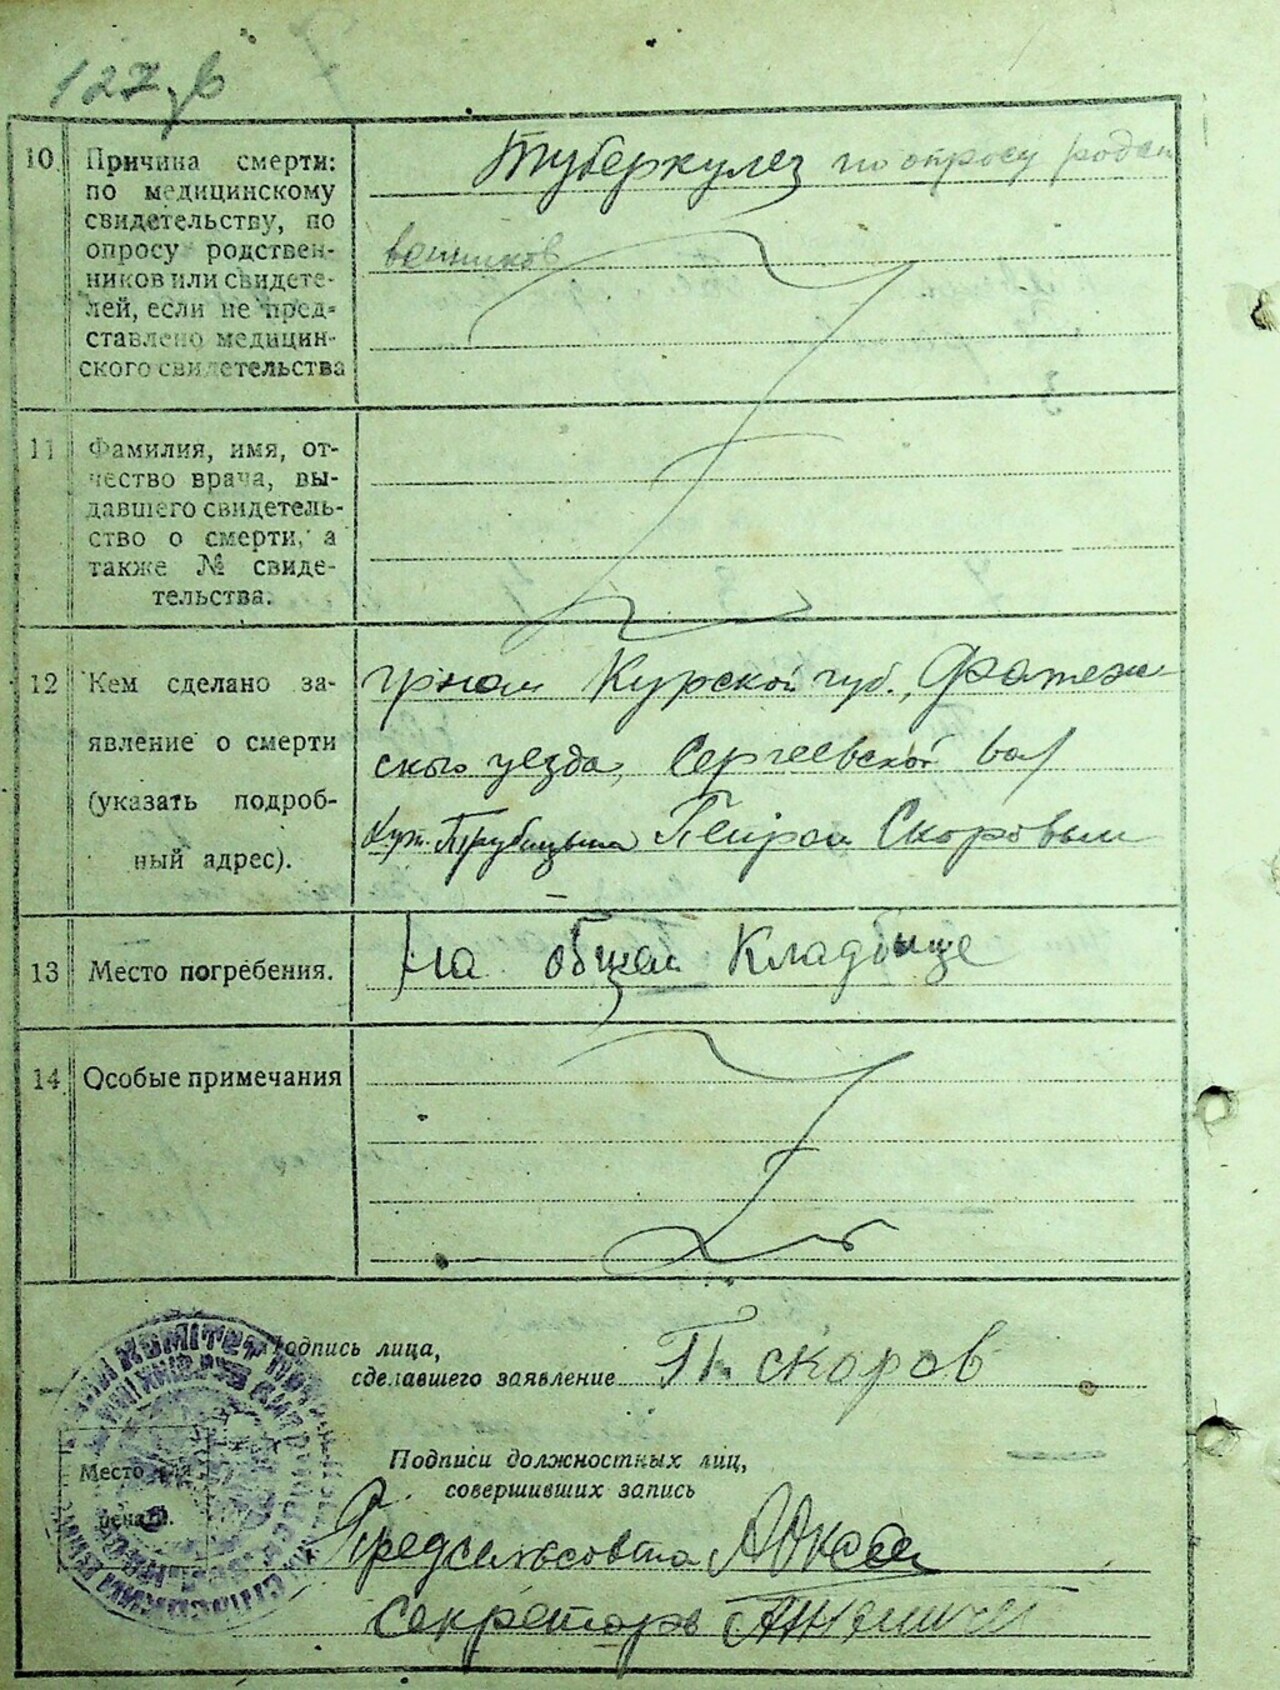 10. Причина смерти:
по медицинскому
свидетельству, по
опросу родствен-
ников или свидете-
лей, если не пред-
ставлено медицин-
ского свидетельства
Туберкулез по опросу родст
венников
11 Фамилия, имя, от-
чество врача, вы-
давшего свидетель-
ство о смерти, а
также № свиде-
тельства.
12 Кем сделано за-
явление о смерти
(указать подроб-
ный адрес).
Курской губ., Фатеж-
ского уезда, Сергеевской вол
Хут. Трубицына Петром Скоровым
13 Место погребения.
На общем Кладбище
14 Особые примечания
Подпись лица,
сделавшего заявление П. скоров
Место для
печати.
Подписи должностных лиц,
совершивших запись
Предсельсовета
Секретарь